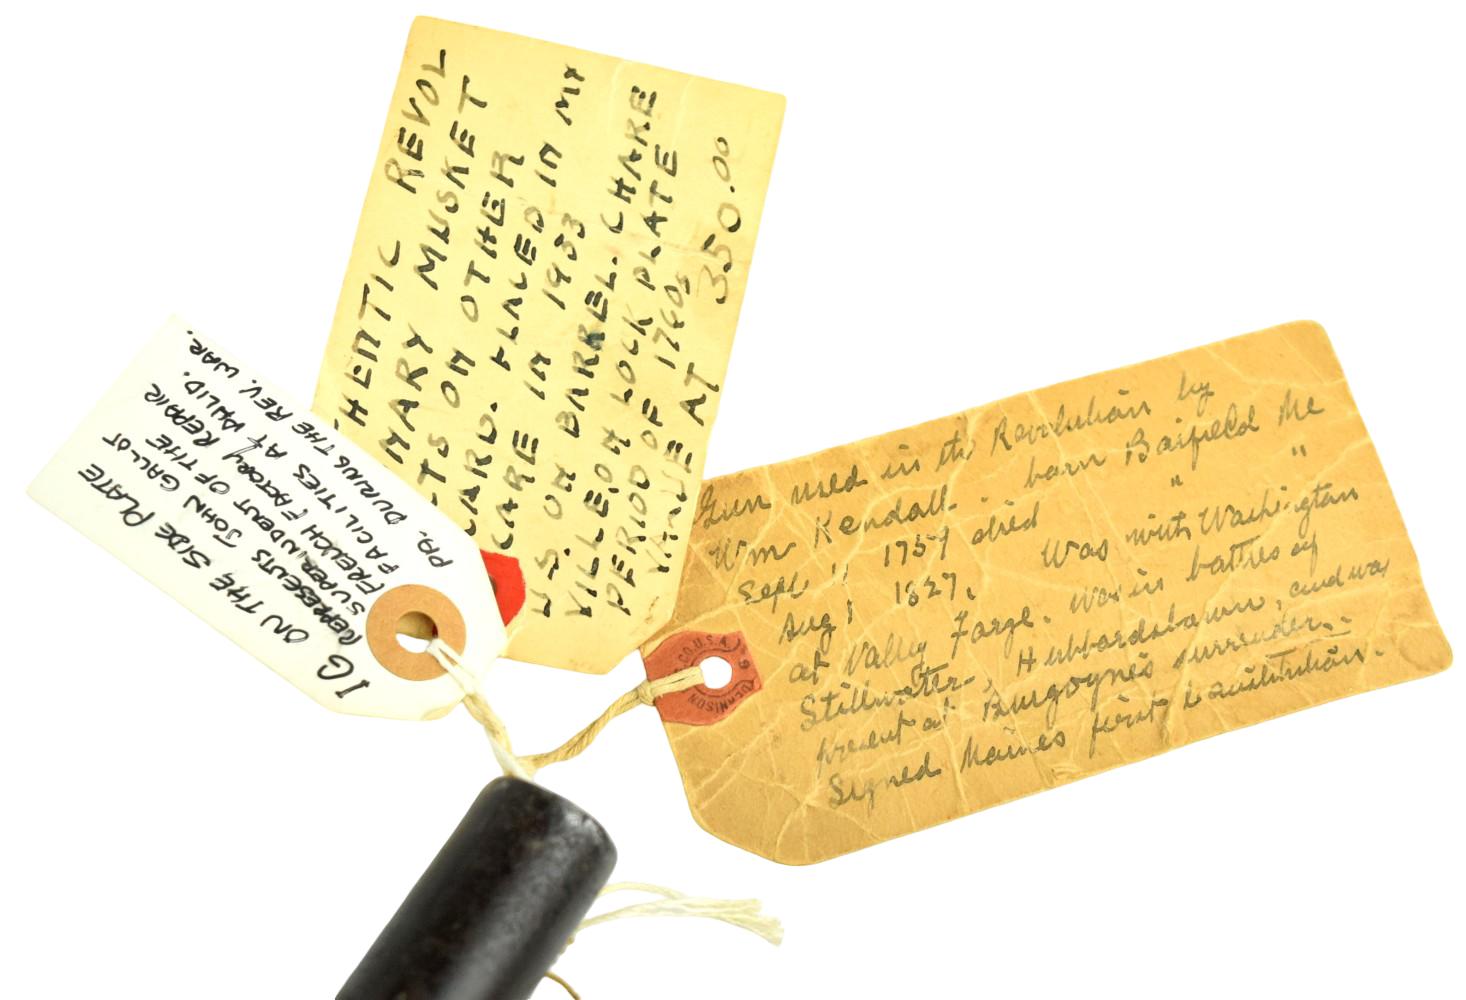 IG ON THE SIDE PLATE
REPRESENTS JOHN GALLOT
SUPERINDENT OF THE
FRENCH FACTORY REPAIR
FACILITIES AT VALLID.
PA. DURING THE REV. WAR.
HENTIC REVOL
NARY MUSKET
CTS ON OTHER
CARD. PLACED IN MY
CARE IN 1953
U.S. ON BARREL. CHARE
VILLE ON LOCK PLATE
PERIOD OF 1760s
VALUE AT 350.00
Gun used in the Revolution by
Wm Kendall. born Baifield Me
Sept 11 1759 died " "
Aug 1 1827. Was with Washington
at Valley Forge. Was in battles of
Stillwater, Hubbardstown, and was
present at Burgoynes surrender.
Signed Maines first Constitution.
CO. U.S.A.
DENNISON